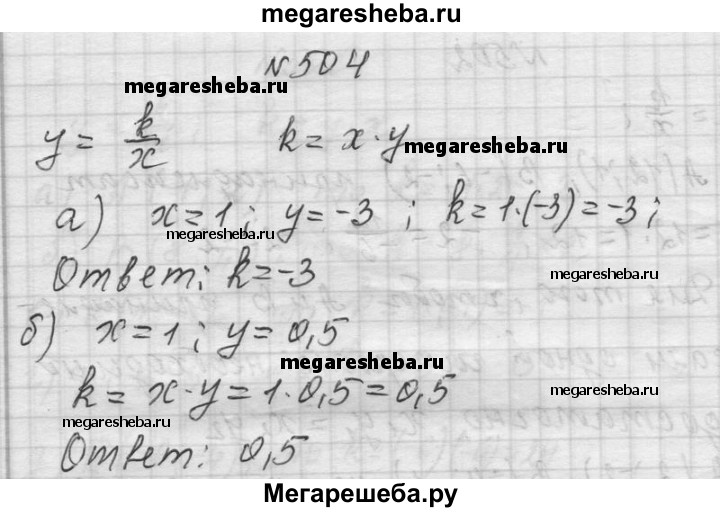 megaresheba.ru
№504
megaresheba.ru
y = k/x k = x·y megaresheba.ru
а) x=1; y=-3; k=1·(-3)=-3;
megaresheba.ru
Ответ: k=-3 megaresheba.ru
б) x=1; y=0,5
megaresheba.ru
k = x·y = 1·0,5 = 0,5
megaresheba.ru megaresheba.ru
Ответ: 0,5
Мегарешеба.ру